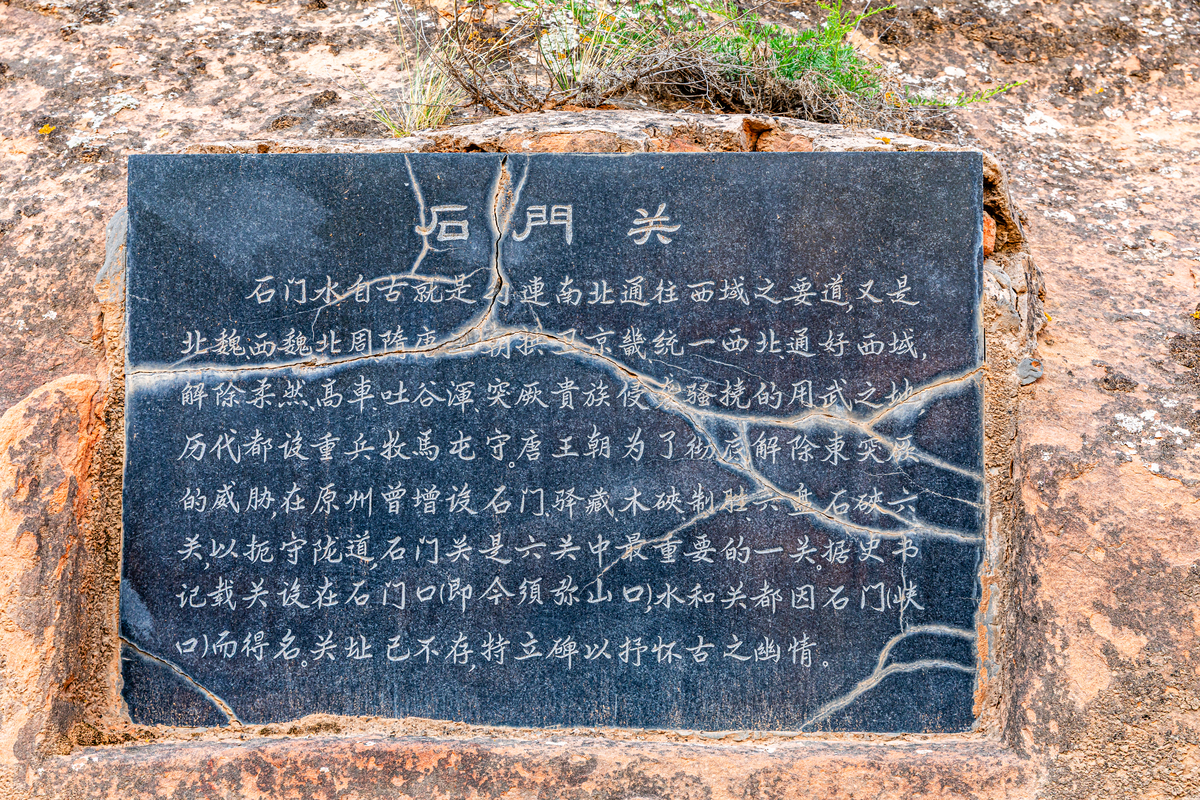 石門关
石门水自古就是 連南北通往西域之要道,又是
北魏西魏北周隋唐 朝拱卫京畿、统一西北、通好西域,
解除柔然、高車、吐谷渾、突厥貴族侵 骚挠的用武之地
历代都设重兵牧馬屯守。唐王朝为了彻底解除東突厥
的威胁,在原州曾增设石门、驿藏、木硖、制胜、六盘、石硖六
关,以扼守陇道,石门关是六关中最重要的一关。据史书
记载关设在石门口(即今須弥山口),水和关都因石门(峡
口)而得名。关址已不存,特立碑以抒怀古之幽情。